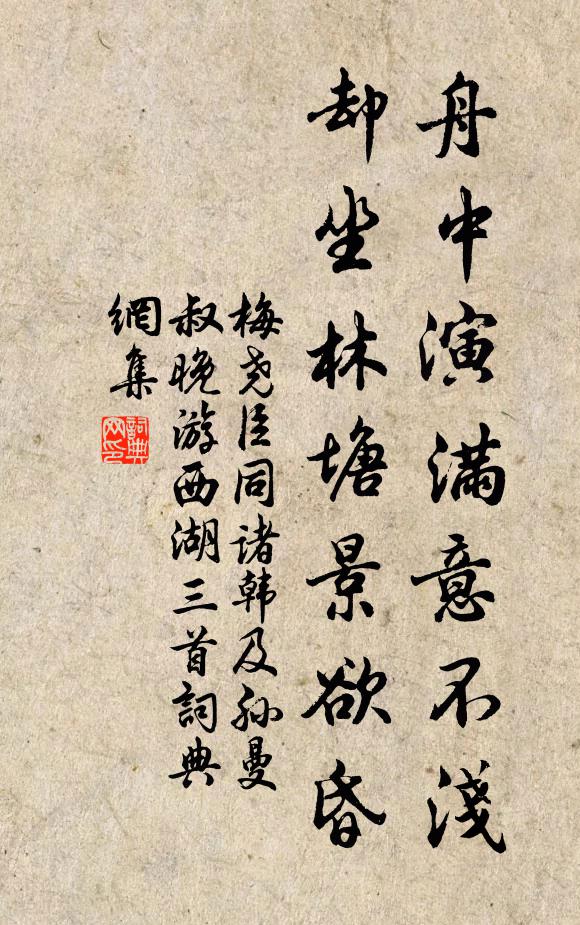 舟中演滿意不淺
却坐林塘景欲昏
梅堯臣同諸韓及孙曼
叔晚游西湖三首詞典
網集
詞典
网印